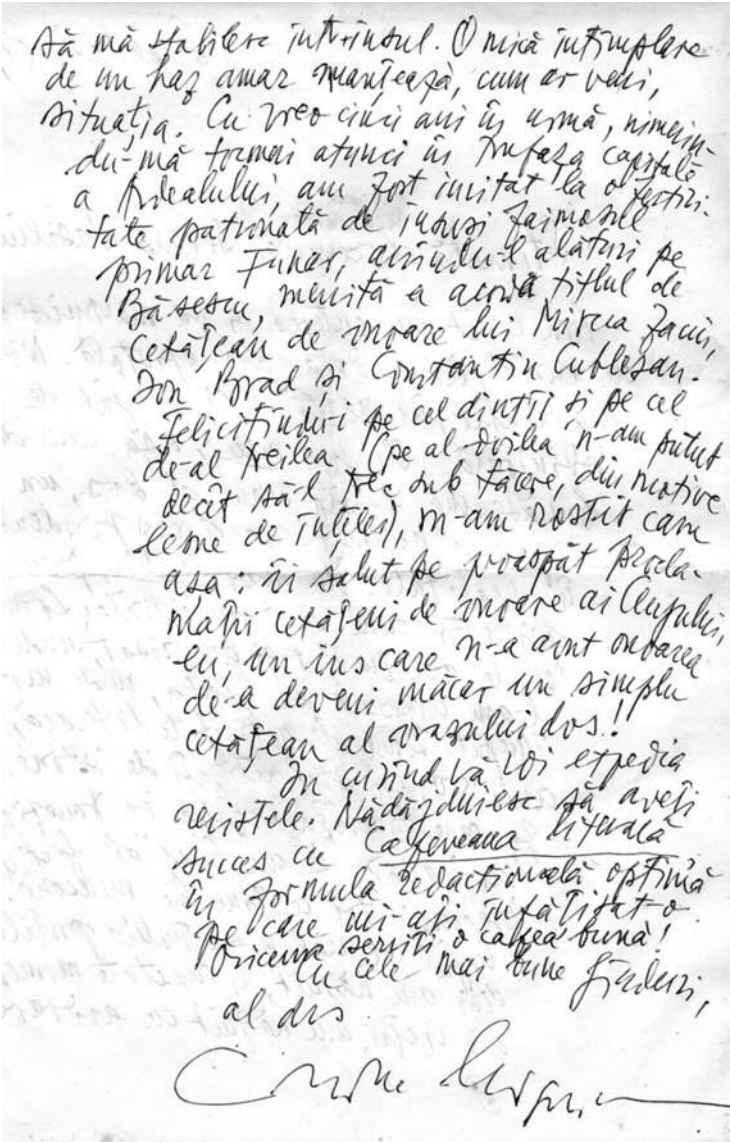 să mă stabilesc într-însul. O mică întîmplare
de un haz amar nuanțează, cum ar veni,
situația. Cu vreo cinci ani în urmă, nimerin-
du-mă tocmai atunci în trufașa capitală
a Ardealului, am fost invitat la o festivi-
tate patronată de însuși faimosul
primar Funar, avîndu-l alături pe
Băsescu, menită a acorda titlul de
cetățean de onoare lui Mircea Zaciu,
Ion Brad și Constantin Cubleșan.
Felicitîndu-i pe cel dintîi și pe cel
de-al treilea (pe al doilea n-am putut
decît să-l trec sub tăcere, din motive
lesne de înțeles), m-am rostit cam
așa: îi salut pe proaspăt procla-
mații cetățeni de onoare ai Clujului,
eu, un ins care n-a avut onoarea
de-a deveni măcar un simplu
cetățean al orașului dvs.!
În curînd vă voi expedia
revistele. Nădăjduiesc să aveți
succes cu Cafeneaua literară
în formula redacțională optimă
pe care mi-ați înfățișat-o.
Oricum serviți o cafea bună!
Cu cele mai bune gînduri,
al dvs